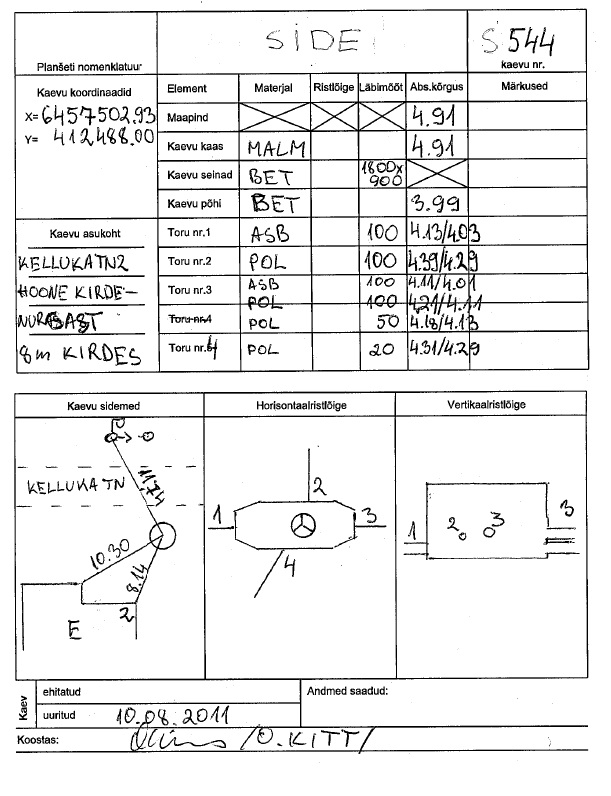 SIDE
S 544
Planšeti nomenklatuur
kaevu nr.
Kaevu koordinaadid
X= 6457502.93
Y= 412488.00
Element Materjal Ristlõige Läbimõõt Abs.kõrgus Märkused
Maapind 4.91
Kaevu kaas MALM 4.91
Kaevu seinad BET 1800x900
Kaevu põhi BET 3.99
Kaevu asukoht
KELLUKA TN 2
HOONE KIRDE-
NURGAST
8m KIRDES
Toru nr.1 ASB 100 4.13/4.03
Toru nr.2 POL 100 4.39/4.29
Toru nr.3 ASB 100 4.11/4.01
POL 100 4.21/4.11
Toru nr.4 POL 50 4.18/4.13
Toru nr.4 POL 20 4.31/4.29
Kaevu sidemed
Horisontaalristlõige
Vertikaalristlõige
KELLUKA TN
11.74
10.30
8.14
2
E
1
2
3
4
1
2
3
3
Kaev
ehitatud
uuritud 10.08.2011
Andmed saadud:
Koostas: /O.KITT/